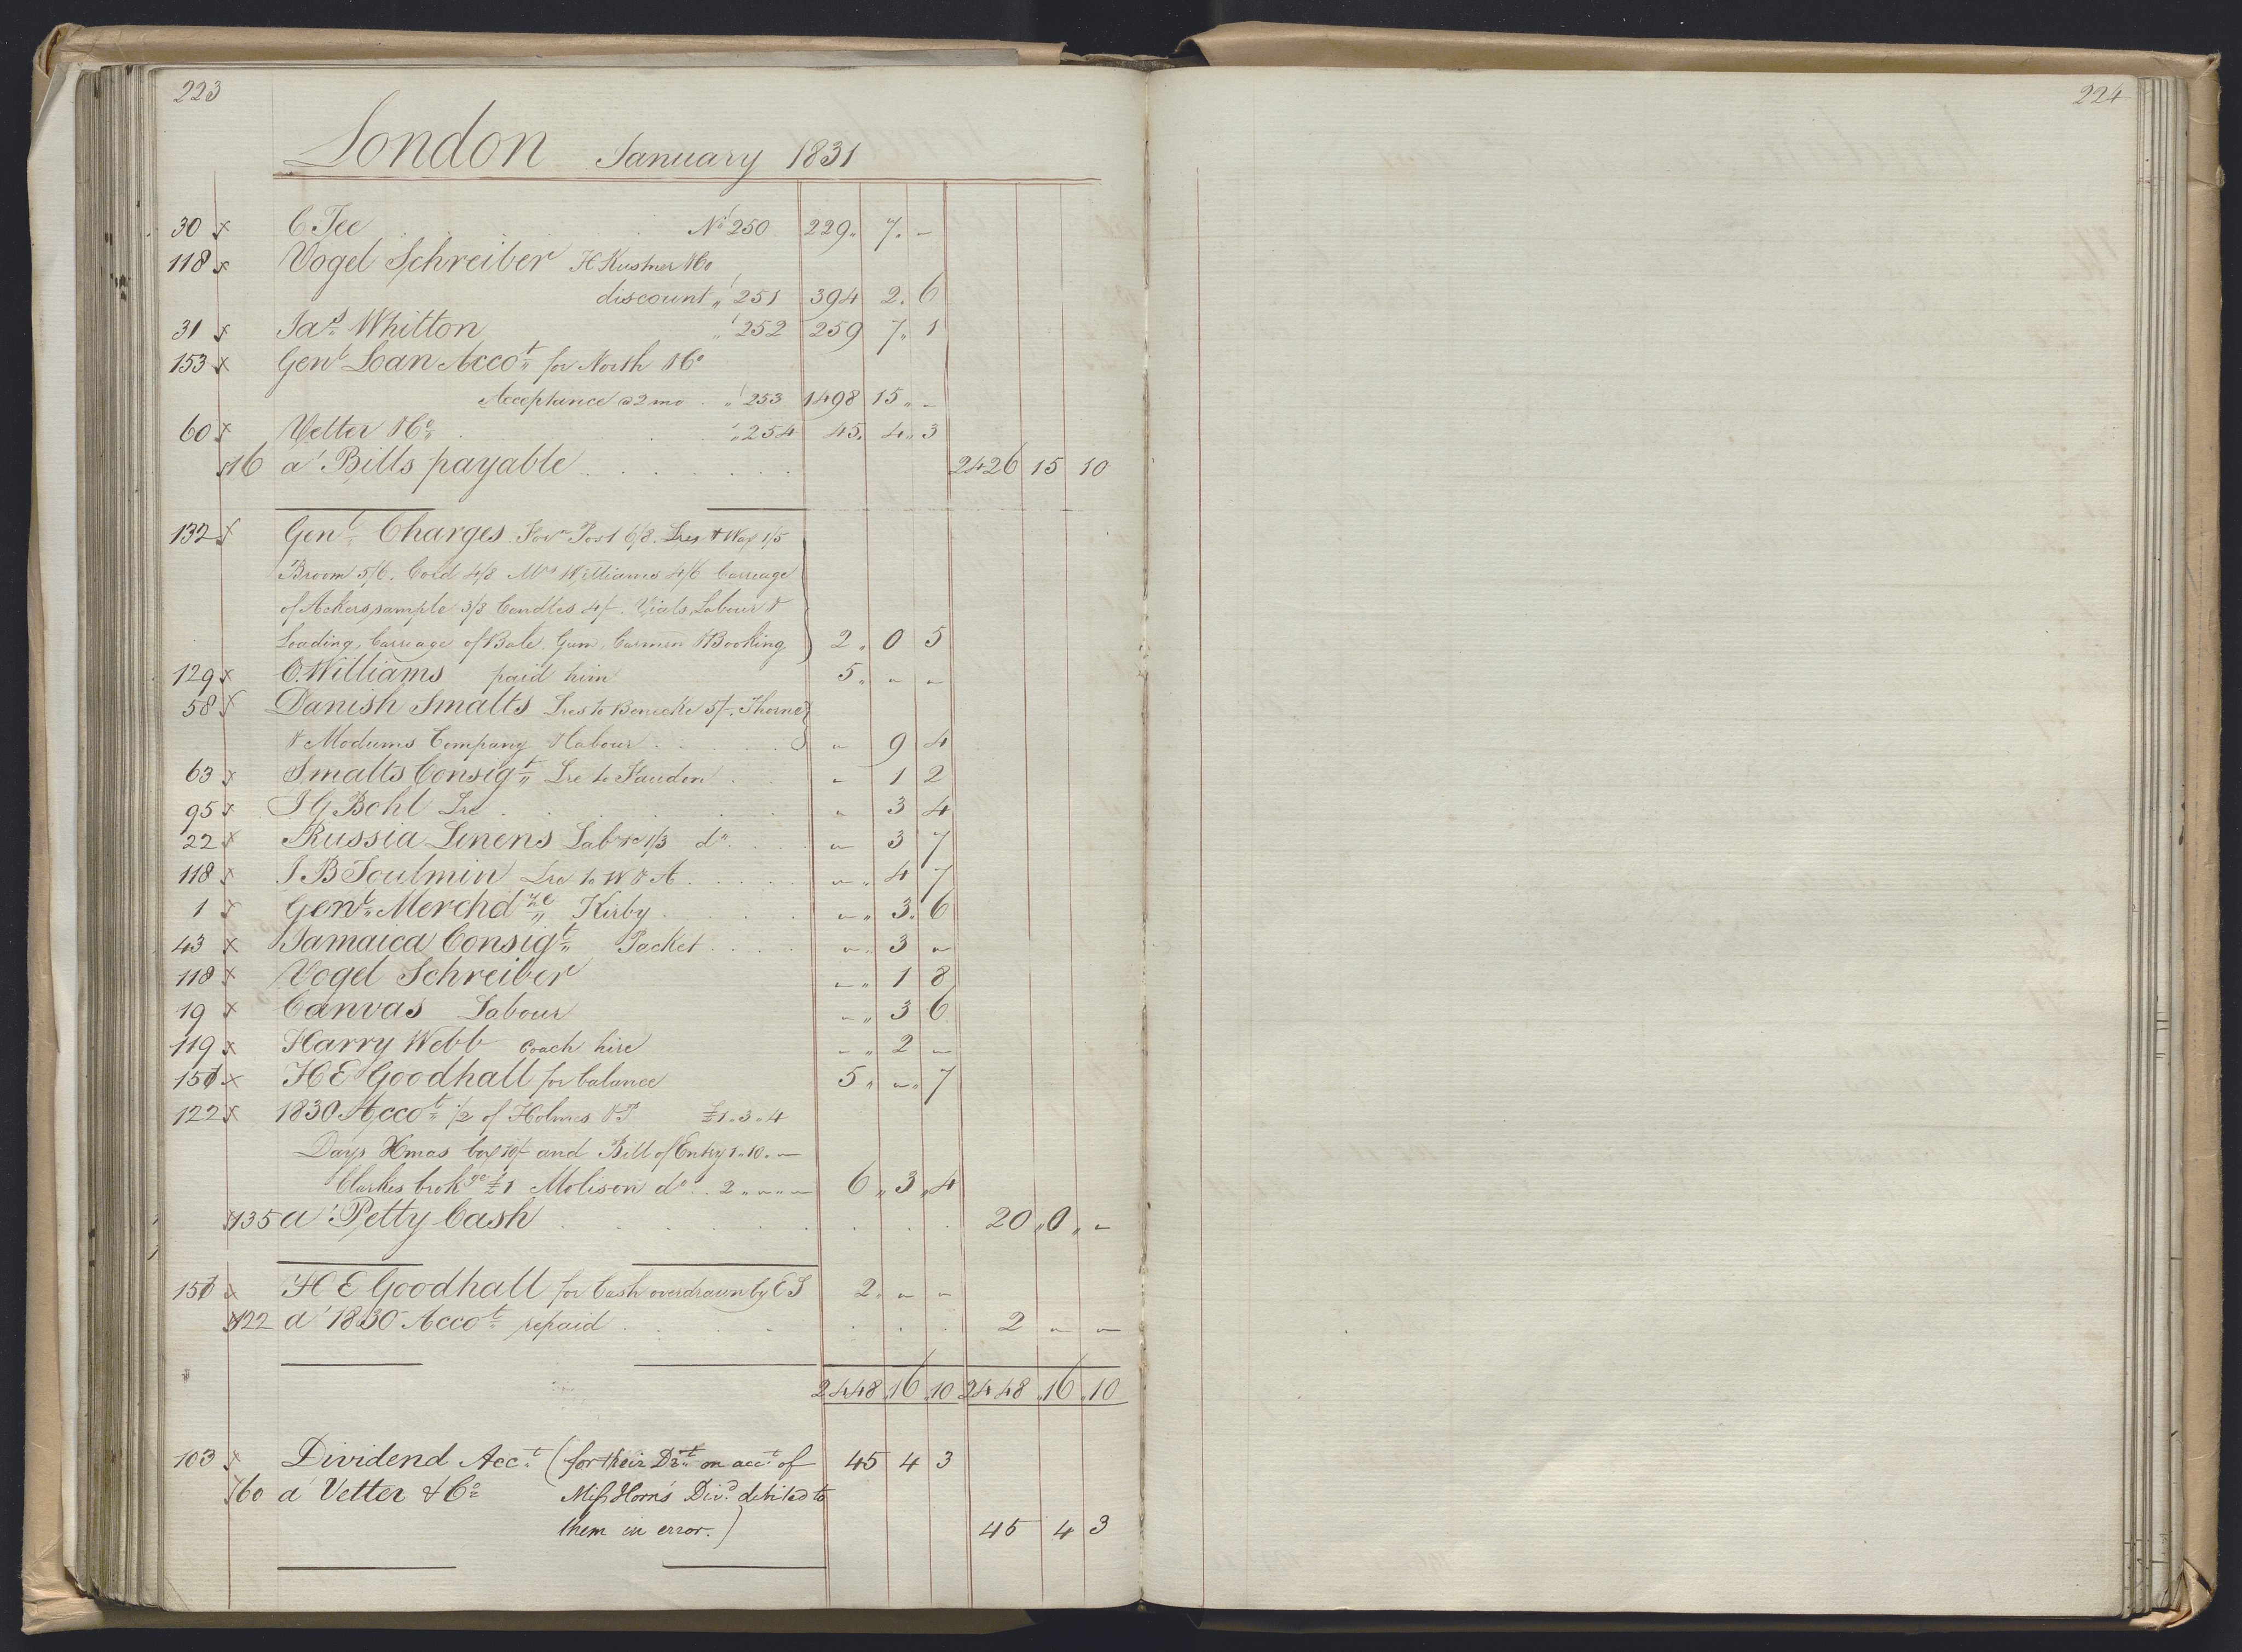 223
London January 1831
30 x C. Tee No 250 229 " 7 " -
118 x Vogel Schreiber H Kustner & Co
discount " 251 394 2 . 6
31 x Jas Whitton " 252 259 7 " 1
153 x Genl Loan Accot for North & Co
Acceptance @ 2 mo " 253 1498 15 " -
60 x Vetter & Co " 254 45 . 4 " 3
x 16 a' Bills payable 2426 15 10
132 x Genl Charges. Forn Post 6/8. Lres & Wax 1/5
Broom 5/6. Cord 4/8 Mrs Williams 4/6 Carreage
of Ackers sample 3/8 Candles 4/-. Vials, Labour &
Loading, Carreage of Bale Gum, Carmen & Booking } 2 " 0 5
129 x C. Williams paid him 5 " " "
58 x Danish Smalts Lres to Benecke 5/-. Thorne
& Modums Company & Labour } " 9 4
63 x Smalts Consigt Lre to " 1 2
95 x J G Bohl Lre " 3 4
22 x Russia Linens Labre 1/3 do " 3 7
118 x J B Toulmin Lre to W & A " " 4 7
1 x Genl Merchdze Kirby " " 3 " 6
43 x Jamaica Consigt Packet " " 3 "
118 x Vogel Schreiber " " 1 8
19 x Canvas Labour " " 3 6
119 x Harry Webb coach hire " " 2 -
151 x H E Goodhall for balance 5 " " " 7
122 x 1830 Accot 1/2 of Holmes & P £1 . 3 . 4
Days Xmas box 10/- and Bill of Entry 1 " 10 . -
Clarkes brokge £1 Molison do . . 2 " " " " 6 " 3 " 4
x 135 a' Petty Cash 20 " 0 " -
151 x H E Goodhall for Cash overdrawn by C S 2 " " "
x 122 a' 1830 Accot repaid 2 " "
2448 " 16 " 10 2448 " 16 " 10
103 x Dividend Acct (for their Drt on acct of 45 4 3
x 60 a' Vetter & Co Miss Horn's Divd debited to
them in error.) 45 4 3
224